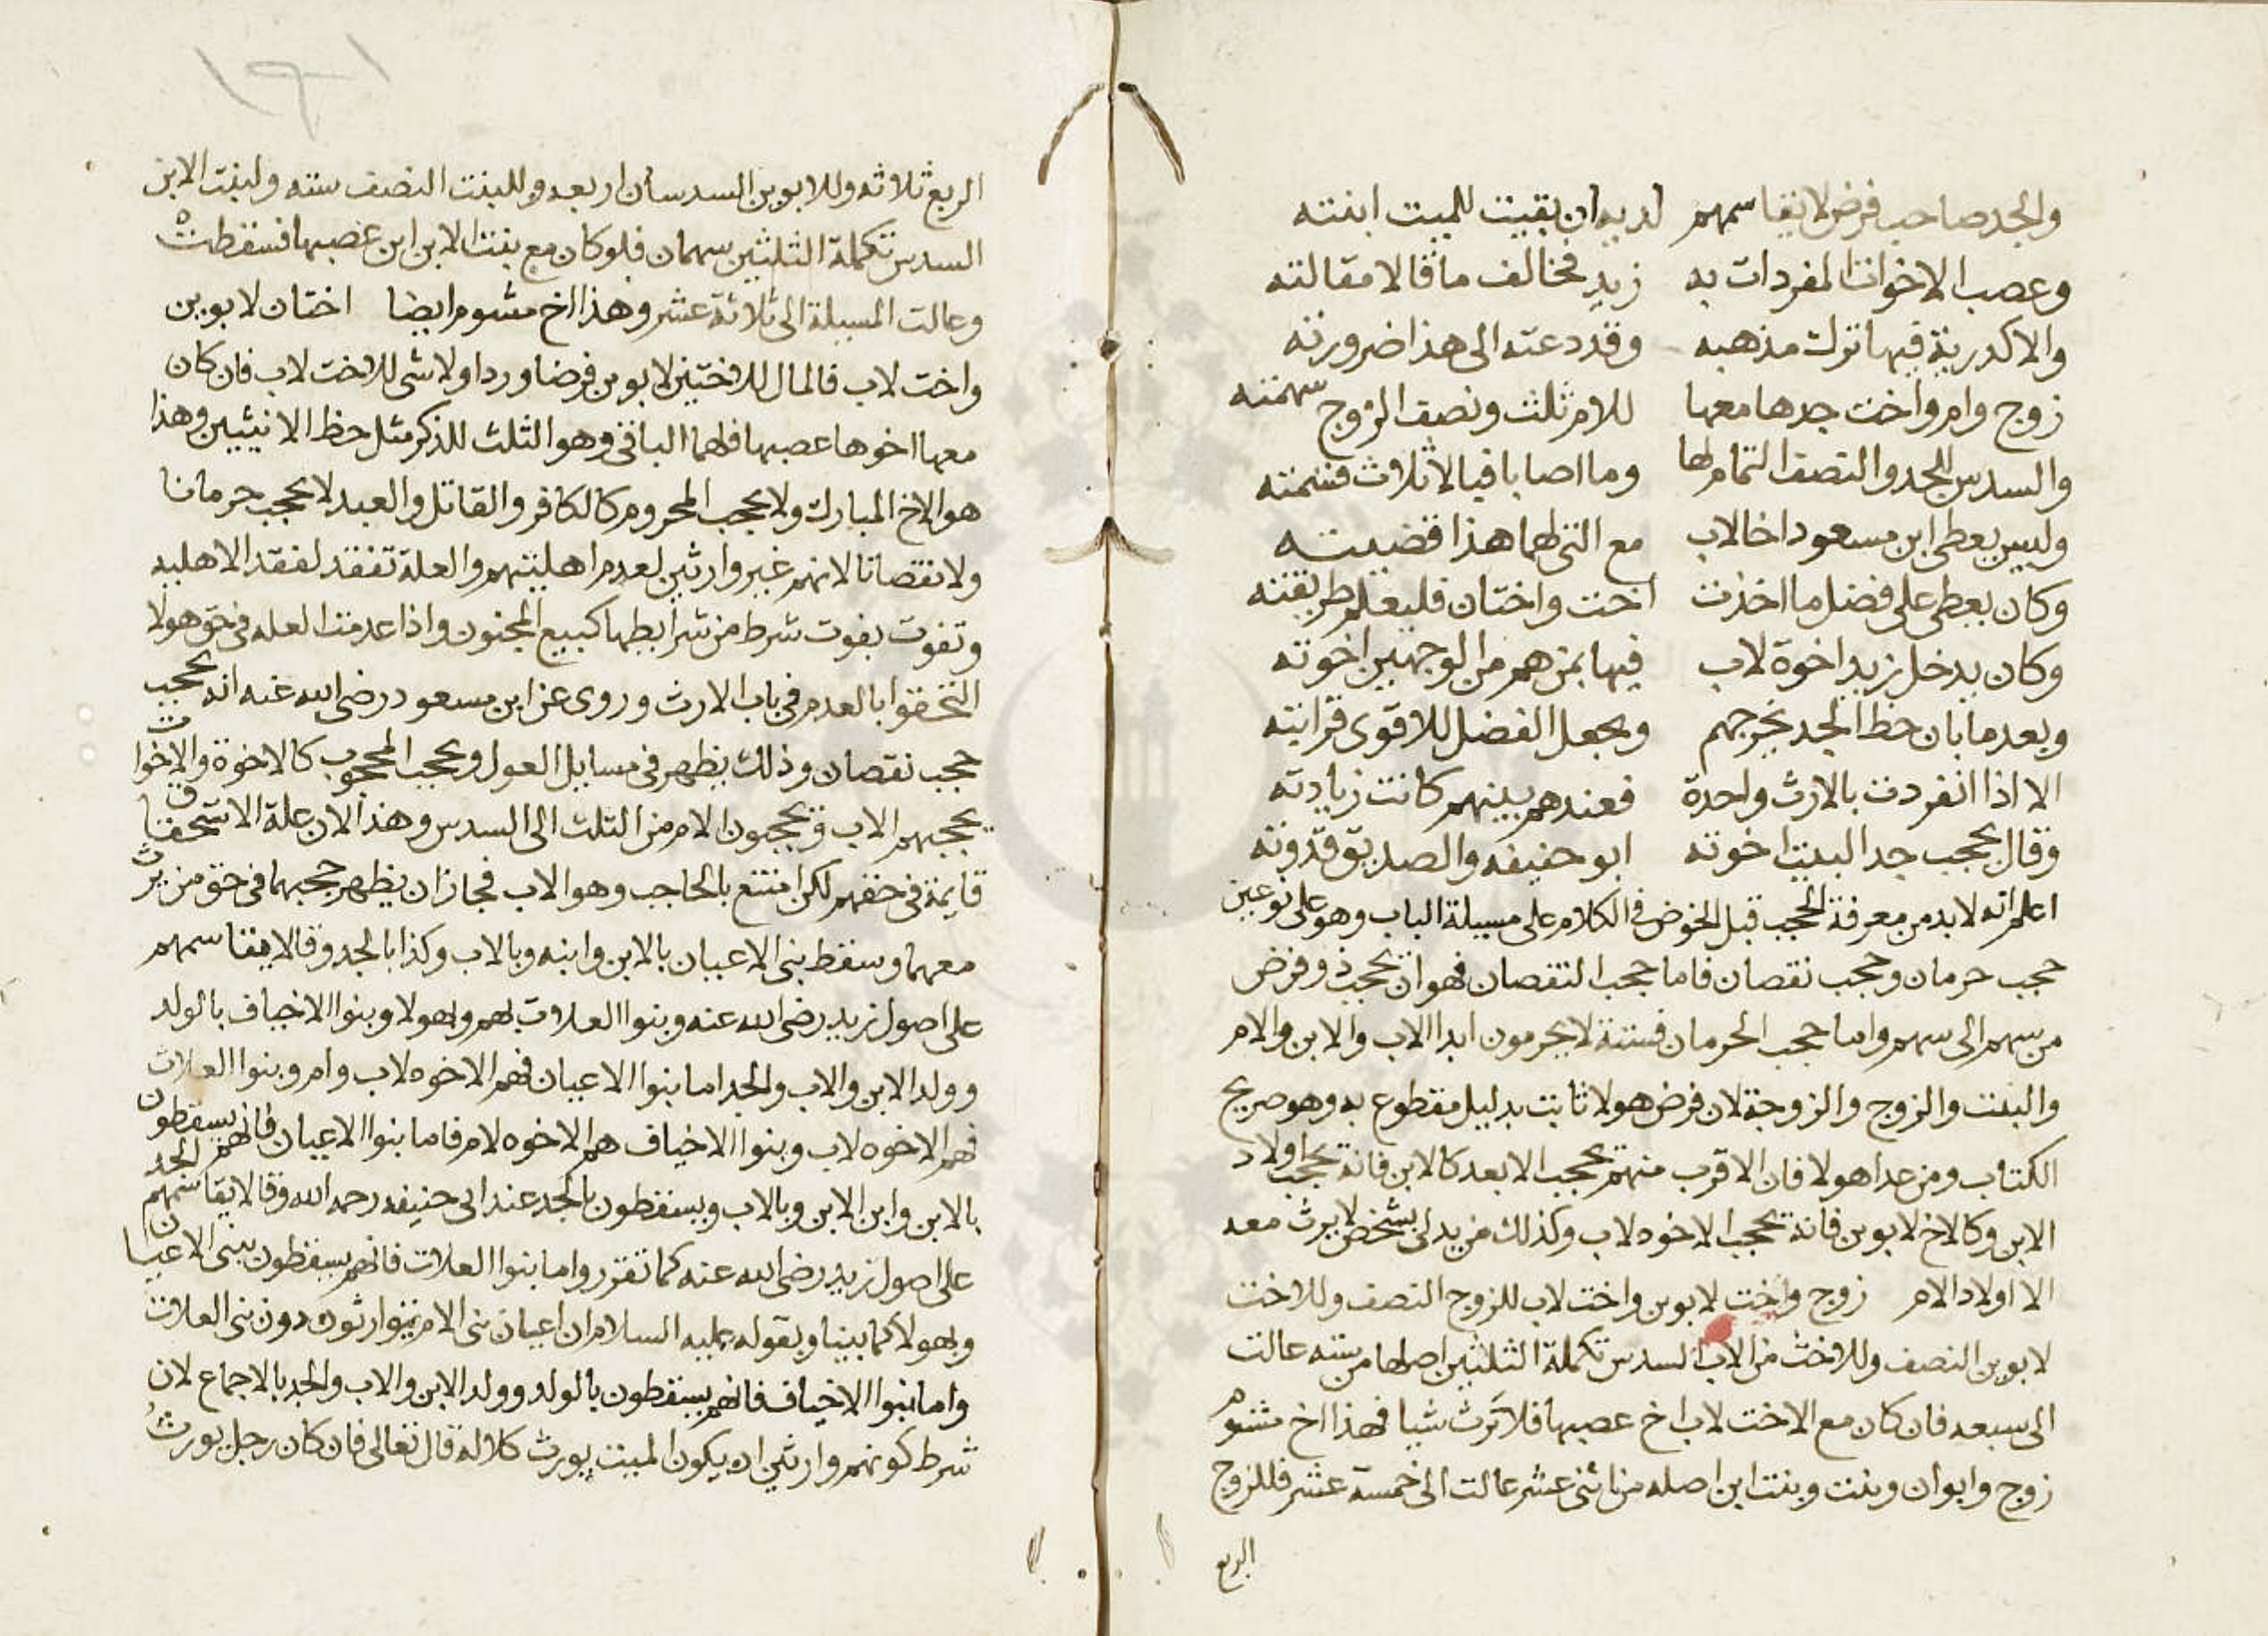 والجد صاحب فرض لا يقاسمهم لديه ان بقيت للميت ابنته
وعصب الاخوات المفردات به زيد فخالف ما قالا مقالته
والاكدرية فيها ترك مذهبه وقد دعته الى هذا ضرورته
زوج وام واخت جدها معها للام ثلث ونصف الزوج سهمته
والسدس للجد والنصف التمام لها وما اصابا فبالاثلاث قسمته
وليس يعطى ابن مسعود اخا لاب مع التي لهما هذا قضيته
وكان يعطى على فضل ما اخذت اخت واختان فليعلم طريقته
وكان يدخل زيد اخوة لاب فيها بمن هم من الوجهين اخوته
وبعد ما بان حظ الجد يخرجهم ويجعل الفضل للاقوى قرابته
الا اذا انفردت بالارث واحدة فعندهم بينهم كانت زيادته
وقال يحجب جد البيت اخوته ابو حنيفه والصديق قدوته
اعلم انه لا بد من معرفة الحجب قبل الخوض في الكلام على مسيلة الباب وهو على نوعين
حجب حرمان وحجب نقصان فاما حجب النقصان فهو ان يحجب ذو فرض
من سهم الى سهم واما حجب الحرمان فستة لا يحرمون ابدا الاب والابن والام
والبنت والزوج والزوجة لان فرض هولا ثابت بدليل مقطوع به وهو صريح
الكتاب ومن عدا هولا فان الاقرب منهم يحجب الابعد كالابن فانه يحجب اولاد
الابن وكالاخ لابوين فانه يحجب الاخوه لاب وكذلك من يدلى بشخص لا يرث معه
الا اولاد الام زوج واخت لابوين واخت لاب للزوج النصف وللاخت
لابوين النصف وللاخت من الاب السدس تكملة الثلثين اصلها من سته عالت
الى سبعه فان كان مع الاخت لاب اخ عصبها فلا ترث شيا فهذا اخ مشوم
زوج وابوان وبنت وبنت ابن اصله من اثني عشر عالت الى خمسة عشر فللزوج
الربع
الربع ثلاثه وللابوين السدسان اربعه وللبنت النصف سته ولبنت الابن
السدس تكملة الثلثين سهمان فلو كان مع بنت الابن ابن عصبها فسقطت
وعالت المسيلة الى ثلاثة عشر وهذا اخ مشوم ايضا اختان لابوين
واخت لاب فالمال للاختين لابوين فرضا وردا ولا شى للاخت لاب فان كان
معها اخوها عصبها فلهما الباقي وهو الثلث للذكر مثل حظ الانثيين وهذا
هو الاخ المبارك ولا يحجب المحروم كالكافر والقاتل والعبد لا يحجب حرمانا
ولا نقصانا لانهم غير وارثين لعدم اهليتهم والعلة تفقد لفقد الاهليه
وتفوت بفوت شرط من شرايطها كبيع المجنون واذا عدمت العله في حق هولا
التحقوا بالعدم في باب الارث وروى عن ابن مسعود رضى الله عنه انه يحجب
حجب نقصان وذلك يظهر في مسايل العول ويحجب المحجوب كالاخوة والاخوات
يحجبهم الاب ويحجبون الام من الثلث الى السدس وهذا لان علة الاستحقاق
قايمة في حقهم لكن امتنع بالحاجب وهو الاب فجاز ان يظهر حجبهما في حق من يرث
معهما وسقط بنى الاعيان بالابن وابنه وبالاب وكذا بالجد وقالا يقاسمهم
على اصول زيد رضى الله عنه وبنوا العلات بهم وبهولا وبنوا الاخياف بالولد
وولد الابن والاب والجد اما بنوا الاعيان فهم الاخوه لاب وام وبنوا العلات
فهم الاخوه لاب وبنوا الاخياف هم الاخوه لام فاما بنوا الاعيان فانهم يسقطون
بالابن وابن الابن وبالاب ويسقطون بالجد عند ابى حنيفه رحمه الله وقالا يقاسمهم الجد
على اصول زيد رضى الله عنه كما تقرر واما بنوا العلات فانهم يسقطون ببنى الاعيان
وبهولا كما بينا وبقوله عليه السلام ان اعيان بنى الام يتوارثون دون بنى العلات
واما بنوا الاخياف فانهم يسقطون بالولد وولد الابن والاب والجد بالاجماع لان
شرط كونهم وارثين ان يكون الميت يورث كلالة قال تعالى فان كان رجل يورث